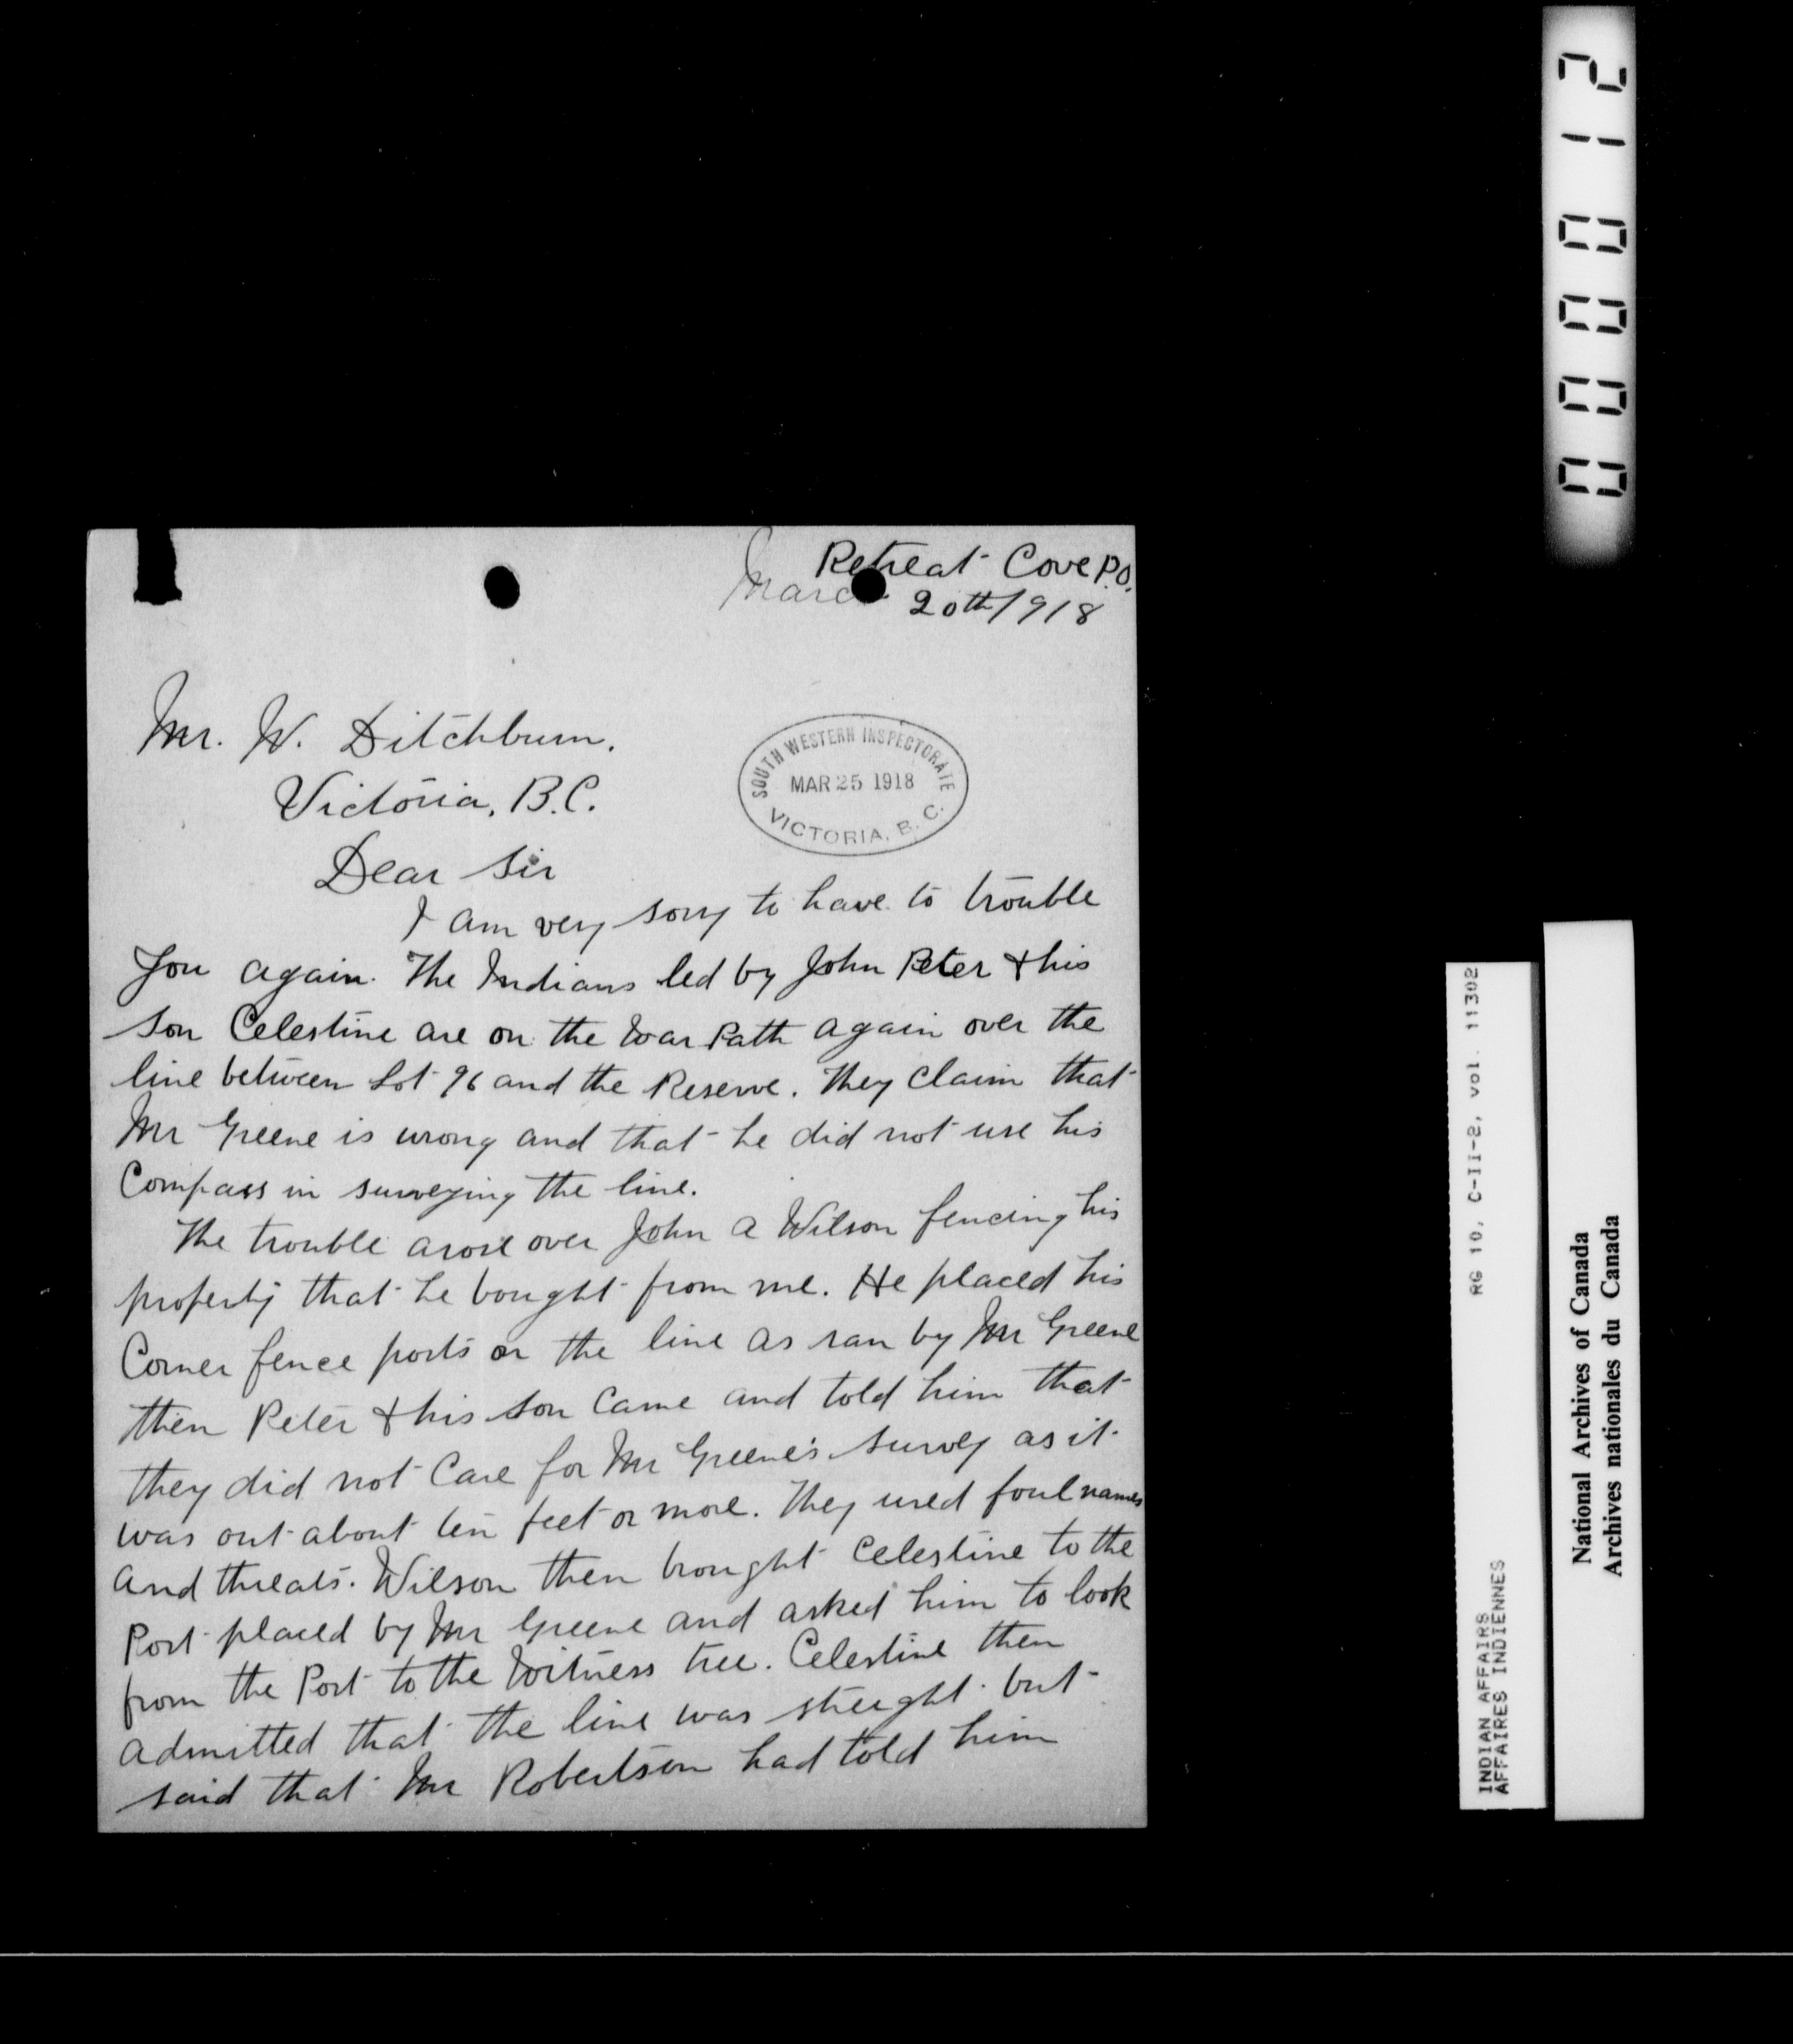 Retreat Cove P.O.
March 20th/918
Mr. W. Ditchburn.
Victoria, B.C.
SOUTH WESTERN INSPECTORATE
MAR 25 1918
VICTORIA, B. C.
Dear Sir
I am very sorry to have to trouble
you again. The Indians led by John Peter & his
son Celestine are on the War Path again over the
line between Lot 96 and the Reserve. They claim that
Mr Greene is wrong and that he did not use his
Compass in surveying the line.
The trouble arose over John A Wilson fencing his
property that he bought from me. He placed his
Corner fence posts on the line as ran by Mr Greene
then Peter & his son Came and told him that
they did not Care for Mr Greene's survey as it
was out about ten feet or more. They used foul names
and threats. Wilson then brought Celestine to the
Post placed by Mr Greene and asked him to look
from the Post to the Witness tree. Celestine then
admitted that the line was streight but
said that Mr Robertson had told him
000012
RG 10, C-II-2, vol. 11302
INDIAN AFFAIRS
AFFAIRES INDIENNES
National Archives of Canada
Archives nationales du Canada